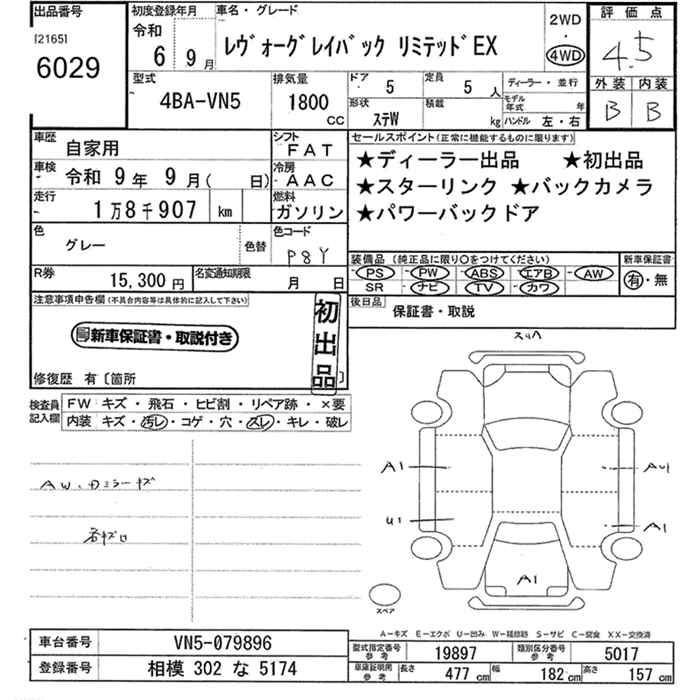 出品番号 初度登録年月 車名・グレード 2WD 評価点
[2165] 6029 令和 6 9月 レヴォーグレイバック リミテッドEX ・ 4WD 4.5
型式 排気量 ドア 定員 ディーラー・並行 外装 内装
4BA-VN5 1800 CC 5 5 人 モデル年式 年 B B
形状 ステW 積載 kg ハンドル 左・右
車歴 自家用 シフト FAT セールスポイント(正常に機能するものに限ります)
車検 令和 9年 9月( 日) 冷房 AAC ★ディーラー出品 ★初出品
走行 1万8千907 km 燃料 ガソリン ★スターリンク ★バックカメラ
★パワーバックドア
色 グレー 色替 色コード P8Y
装備品 (純正品に限り○をつけてください) 新車保証書
PS PW ABS エアB AW 有・無
SR ナビ TV カワ
R券 15,300円 名変通知期限 月 日
注意事項申告欄(不具合内容等は具体的に記入して下さい) 後日品 保証書・取説
新車保証書・取説付き 初出品
修復歴 有〔箇所 〕
検査員記入欄 FW キズ・飛石・ヒビ割・リペア跡・×要
内装 キズ・汚レ・コゲ・穴・スレ・キレ・破レ
スリA
A1
U1
A1
A1
AW、
スペア
A-キズ E-エクボ U-凹み W-補修跡 S-サビ C-腐食 XX-交換済
車台番号 VN5-079896 型式指定番号 参考 19897 類別区分番号 参考 5017
登録番号 相模 302 な 5174 車庫証明用 参考 長さ 477 cm 幅 182 cm 高さ 157 cm